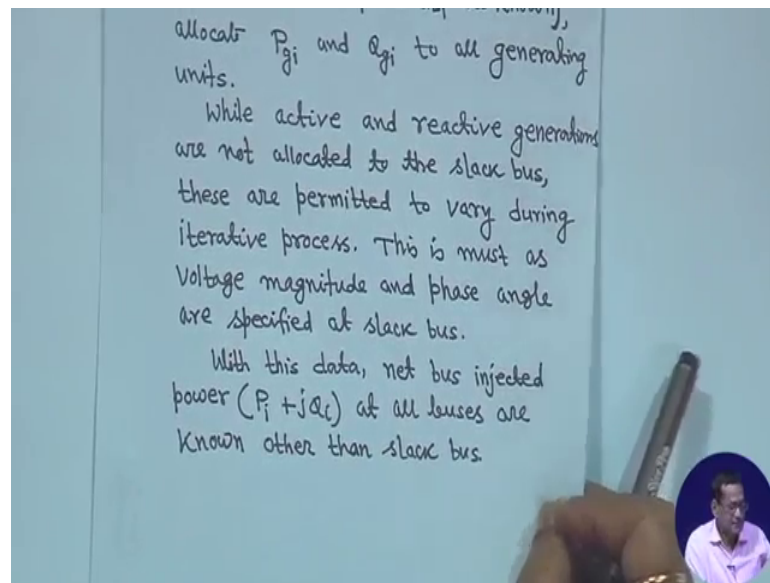 allocate Pgi and Qgi to all generating
units.
While active and reactive generations
are not allocated to the slack bus,
these are permitted to vary during
iterative process. This is must as
voltage magnitude and phase angle
are specified at slack bus.
With this data, net bus injected
power (Pi + jQi) at all buses are
known other than slack bus.